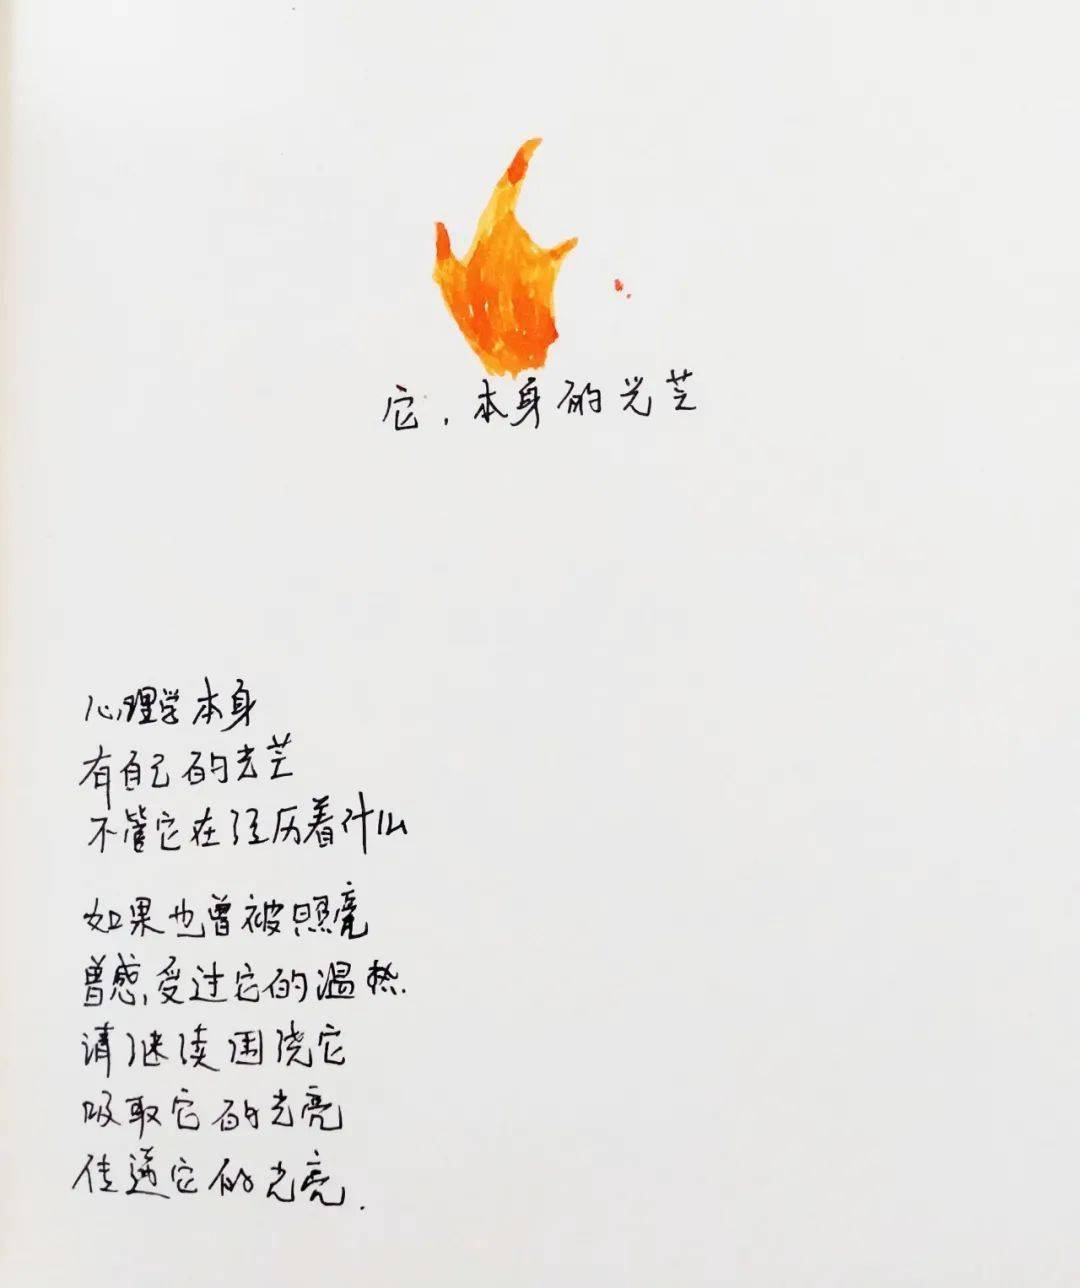 它，本身的光芒
心理学本身
有自己的光芒
不管它在经历着什么
如果也曾被照亮
曾感受过它的温热.
请继续围绕它
吸取它的光亮
传递它的光亮.